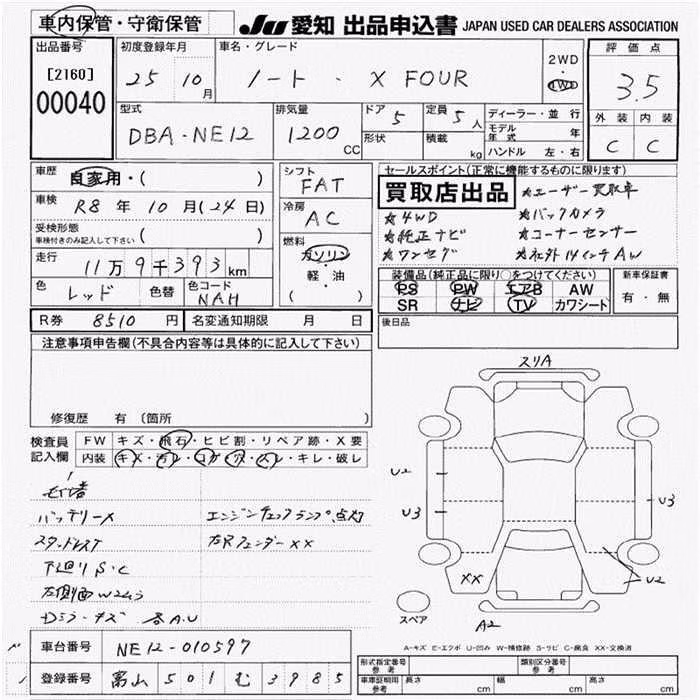 車内保管・守衛保管
JU 愛知 出品申込書 JAPAN USED CAR DEALERS ASSOCIATION
出品番号
[2160]
00040
初度登録年月
25 10月
車名・グレード
ノート ・ X FOUR
2WD
・
4WD
評価点
3.5
外装 内装
C C
型式
DBA-NE12
排気量
1200 CC
ドア 5
形状
定員 5人
積載 kg
ディーラー・並行
モデル年式 年
ハンドル 左・右
車歴
自家用・( )
車検
R8年10月(24日)
受検形態
車検付きのみ記入して下さい ( )
走行
11万9千393km
色 レッド 色替 色コード NAH
シフト
FAT
冷房
AC
燃料
ガソリン
軽・油
( )
セールスポイント(正常に機能するものに限ります)
買取店出品
★ユーザー買取車
★4WD ★バックカメラ
★純正ナビ ★コーナーセンサー
★ワンセグ ★社外14インチAW
装備品(純正品に限り○をつけてください)
PS PW エアB AW
SR ナビ TV カワシート
新車保証書
有・無
R券 8510円 名変通知期限 月 日
後日品
注意事項申告欄(不具合内容等は具体的に記入して下さい)
修復歴 有 (箇所 )
検査員記入欄
FW キズ・飛石・ヒビ割・リペア跡・X要
内装 キズ・汚レ・コゲ・穴・スレ・キレ・破レ
バッテリーX エンジンチェックランプ点灯
スタッドレス 右Rフェンダー XX
下廻りS・C
左側面W2より
スリA
U2
U3
U3
U2
XX
A2
スペア
A-キズ E-エクボ U-凹み W-補修跡 S-サビ C-腐食 XX-交換済
車台番号 NE12-010597
登録番号 富山 501 む 3985
形式指定番号 参考
類別区分番号 参考
車庫証明用 参考 長さ cm 幅 cm 高さ cm